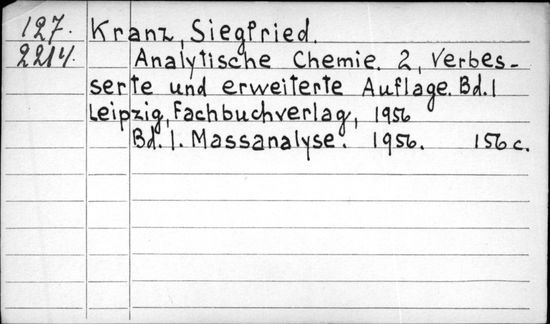 127. Kranz, Siegfried.
2214. Analytische Chemie. 2, Verbes-
serte und erweiterte Auflage. Bd. 1
Leipzig, Fachbuchverlag, 1956
Bd. 1. Massanalyse. 1956. 156 c.